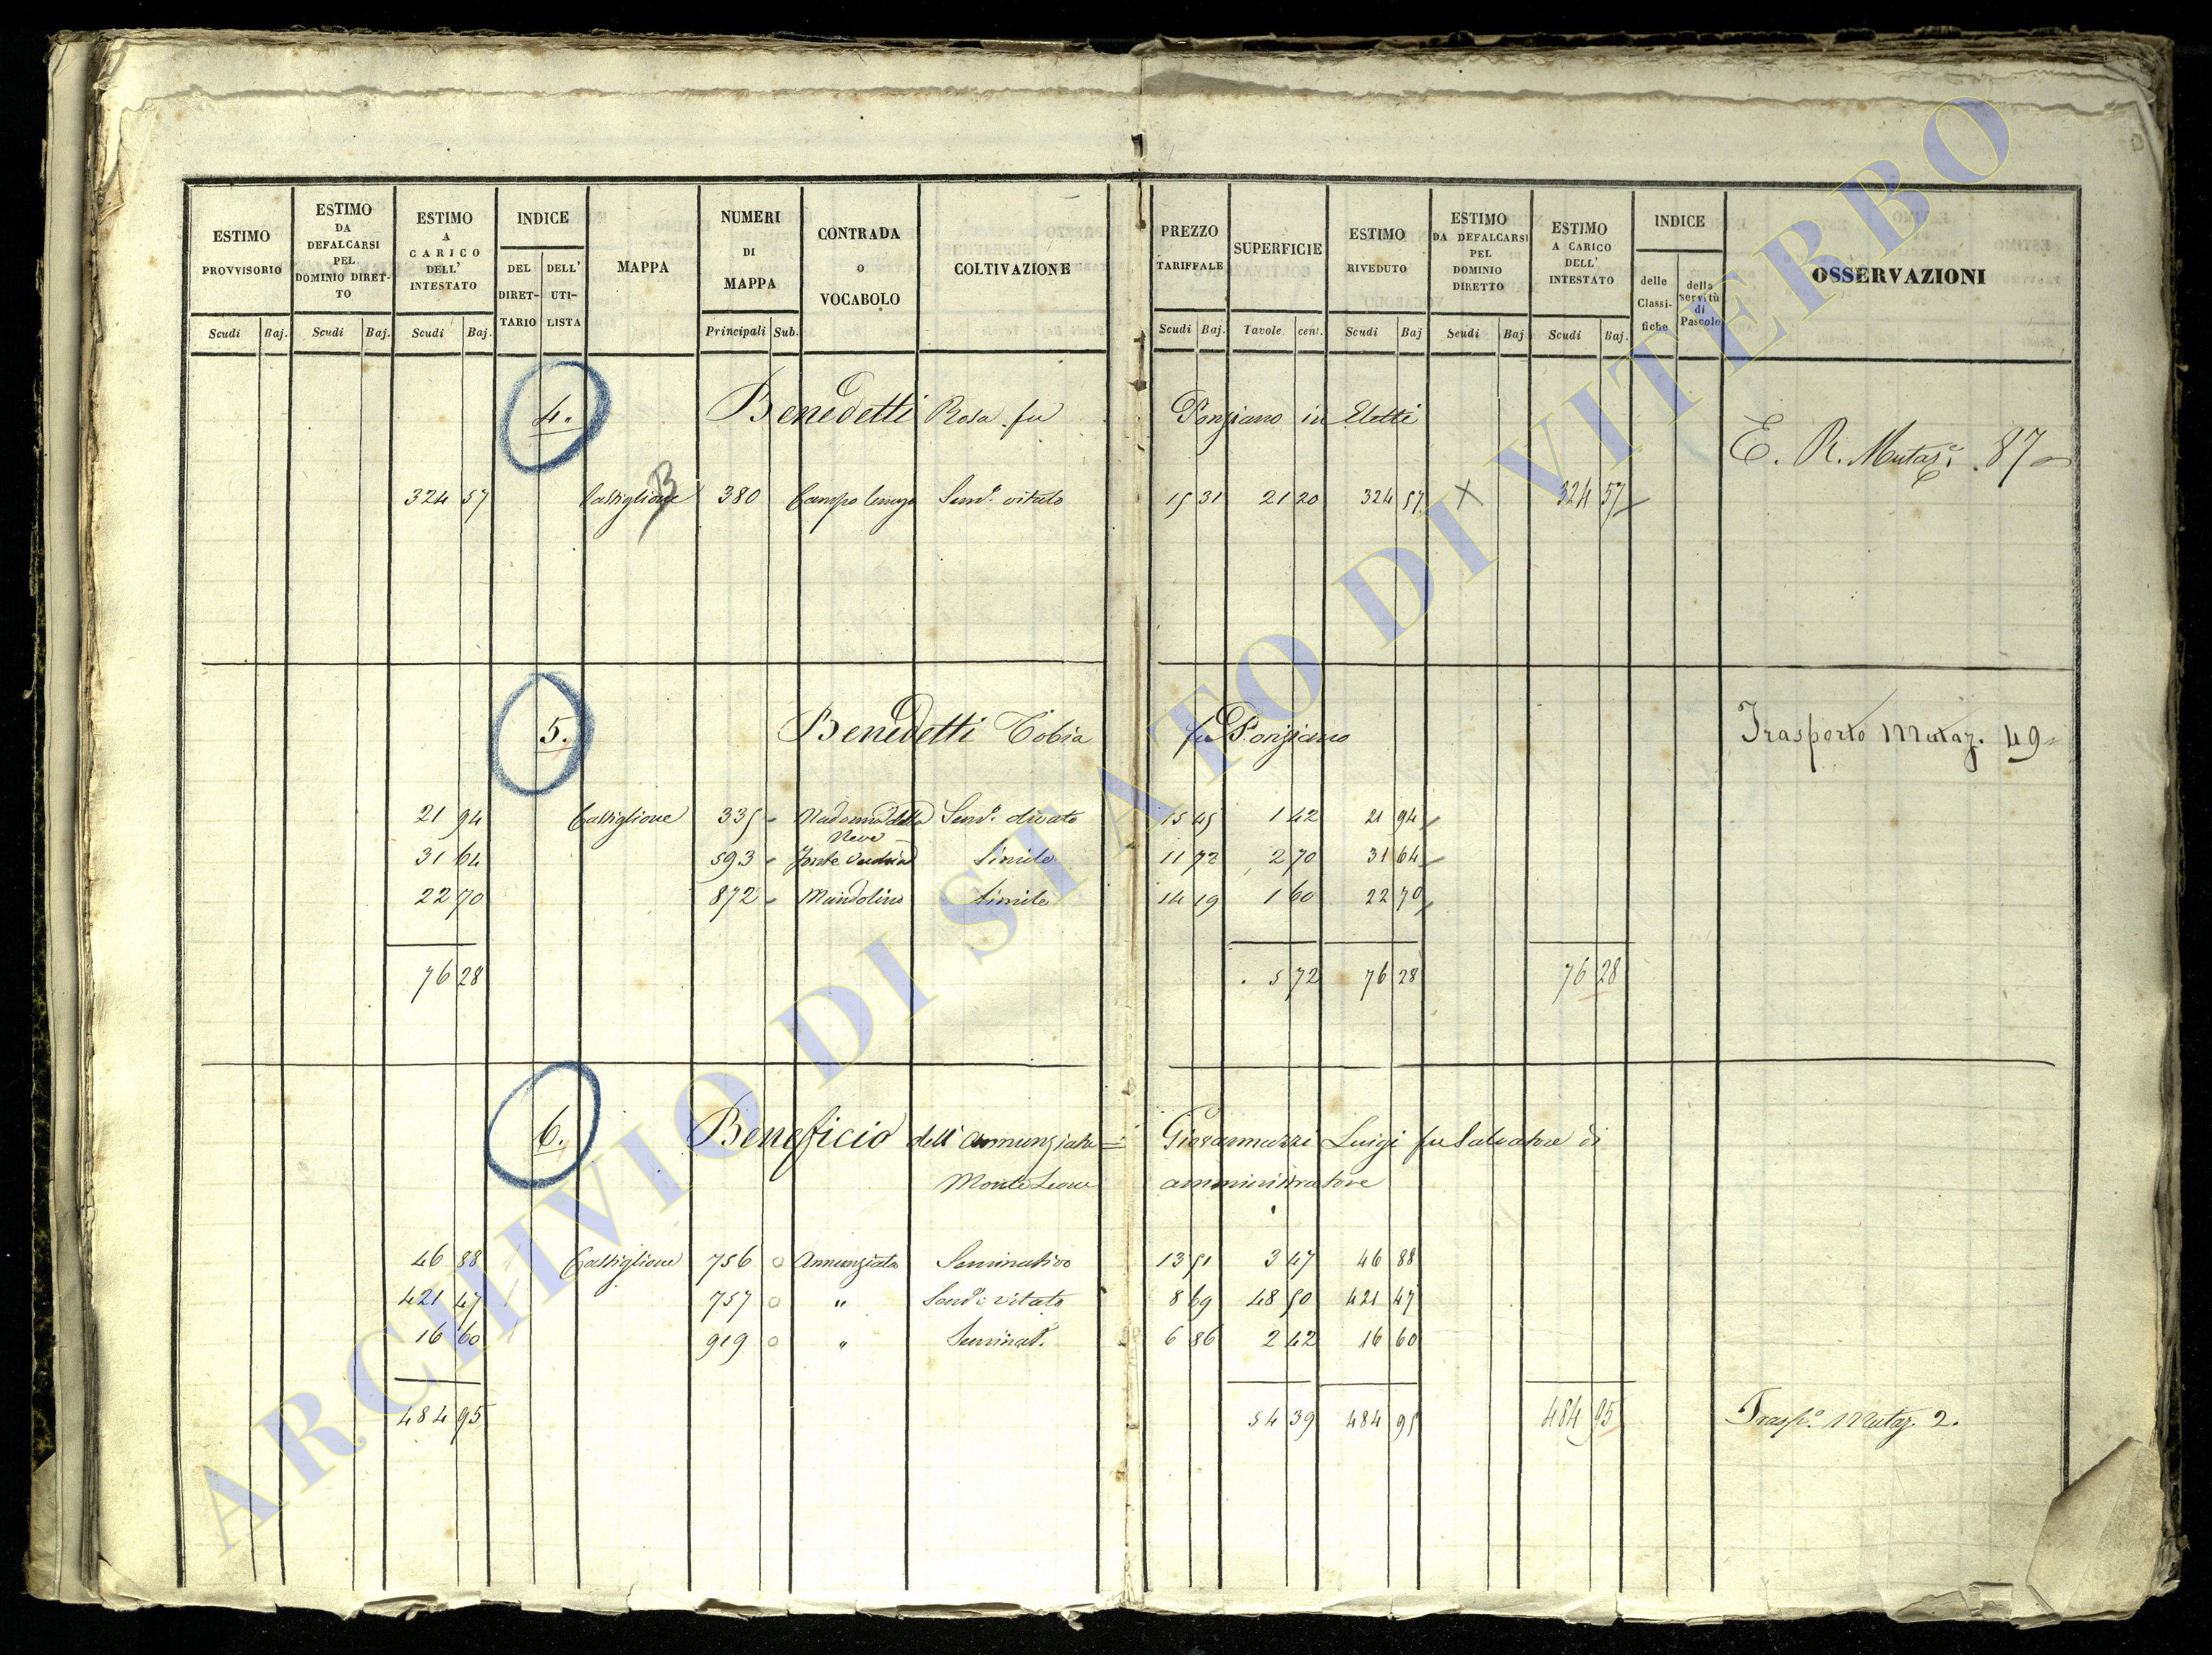 ESTIMO PROVVISORIO
Scudi Baj.
ESTIMO DA DEFALCARSI PEL DOMINIO DIRET-TO
Scudi Baj.
ESTIMO A CARICO DELL' INTESTATO
Scudi Baj.
INDICE
DEL DIRET-TARIO
DELL' UTI-LISTA
MAPPA
NUMERI DI MAPPA
Principali Sub.
CONTRADA o VOCABOLO
COLTIVAZIONE
PREZZO TARIFFALE
Scudi Baj.
SUPERFICIE
Tavole cent.
ESTIMO RIVEDUTO
Scudi Baj
ESTIMO DA DEFALCARSI PEL DOMINIO DIRETTO
Scudi Baj
ESTIMO A CARICO DELL' INTESTATO
Scudi Baj.
INDICE
delle Classi-fiche
della servitù di Pascolo
OSSERVAZIONI
4. Benedetti Rosa fu Ponziano in Eletti
E. R. Mutaz. 87
324 57 Castiglione B 380 Campo Semo. vitato 15 31 21 20 324 57 X 324 57
5. Benedetti Tobia fu Ponziano Trasporto Mutaz. 49
21 94 Castiglione 335 Madonna della Neve Semo. olivato 15 45 1 42 21 94
31 64 593 Fonte Simile 11 72 2 70 31 64
22 70 872 Mandolino Simile 14 19 1 60 22 70
76 28 5 72 76 28 76 28
6. Beneficio dell' Annunziata = Giovannuzzi Luigi fu Salvatore di
Monte Leone amministratore
46 88 Castiglione 756 Annunziata Seminativo 13 51 3 47 46 88
421 47 757 " Semo. vitato 8 69 48 50 421 47
16 60 919 " Seminat. 6 86 2 42 16 60
484 95 54 39 484 95 484 95 Traspo. Mutaz. 2.
ARCHIVIO DI STATO DI VITERBO